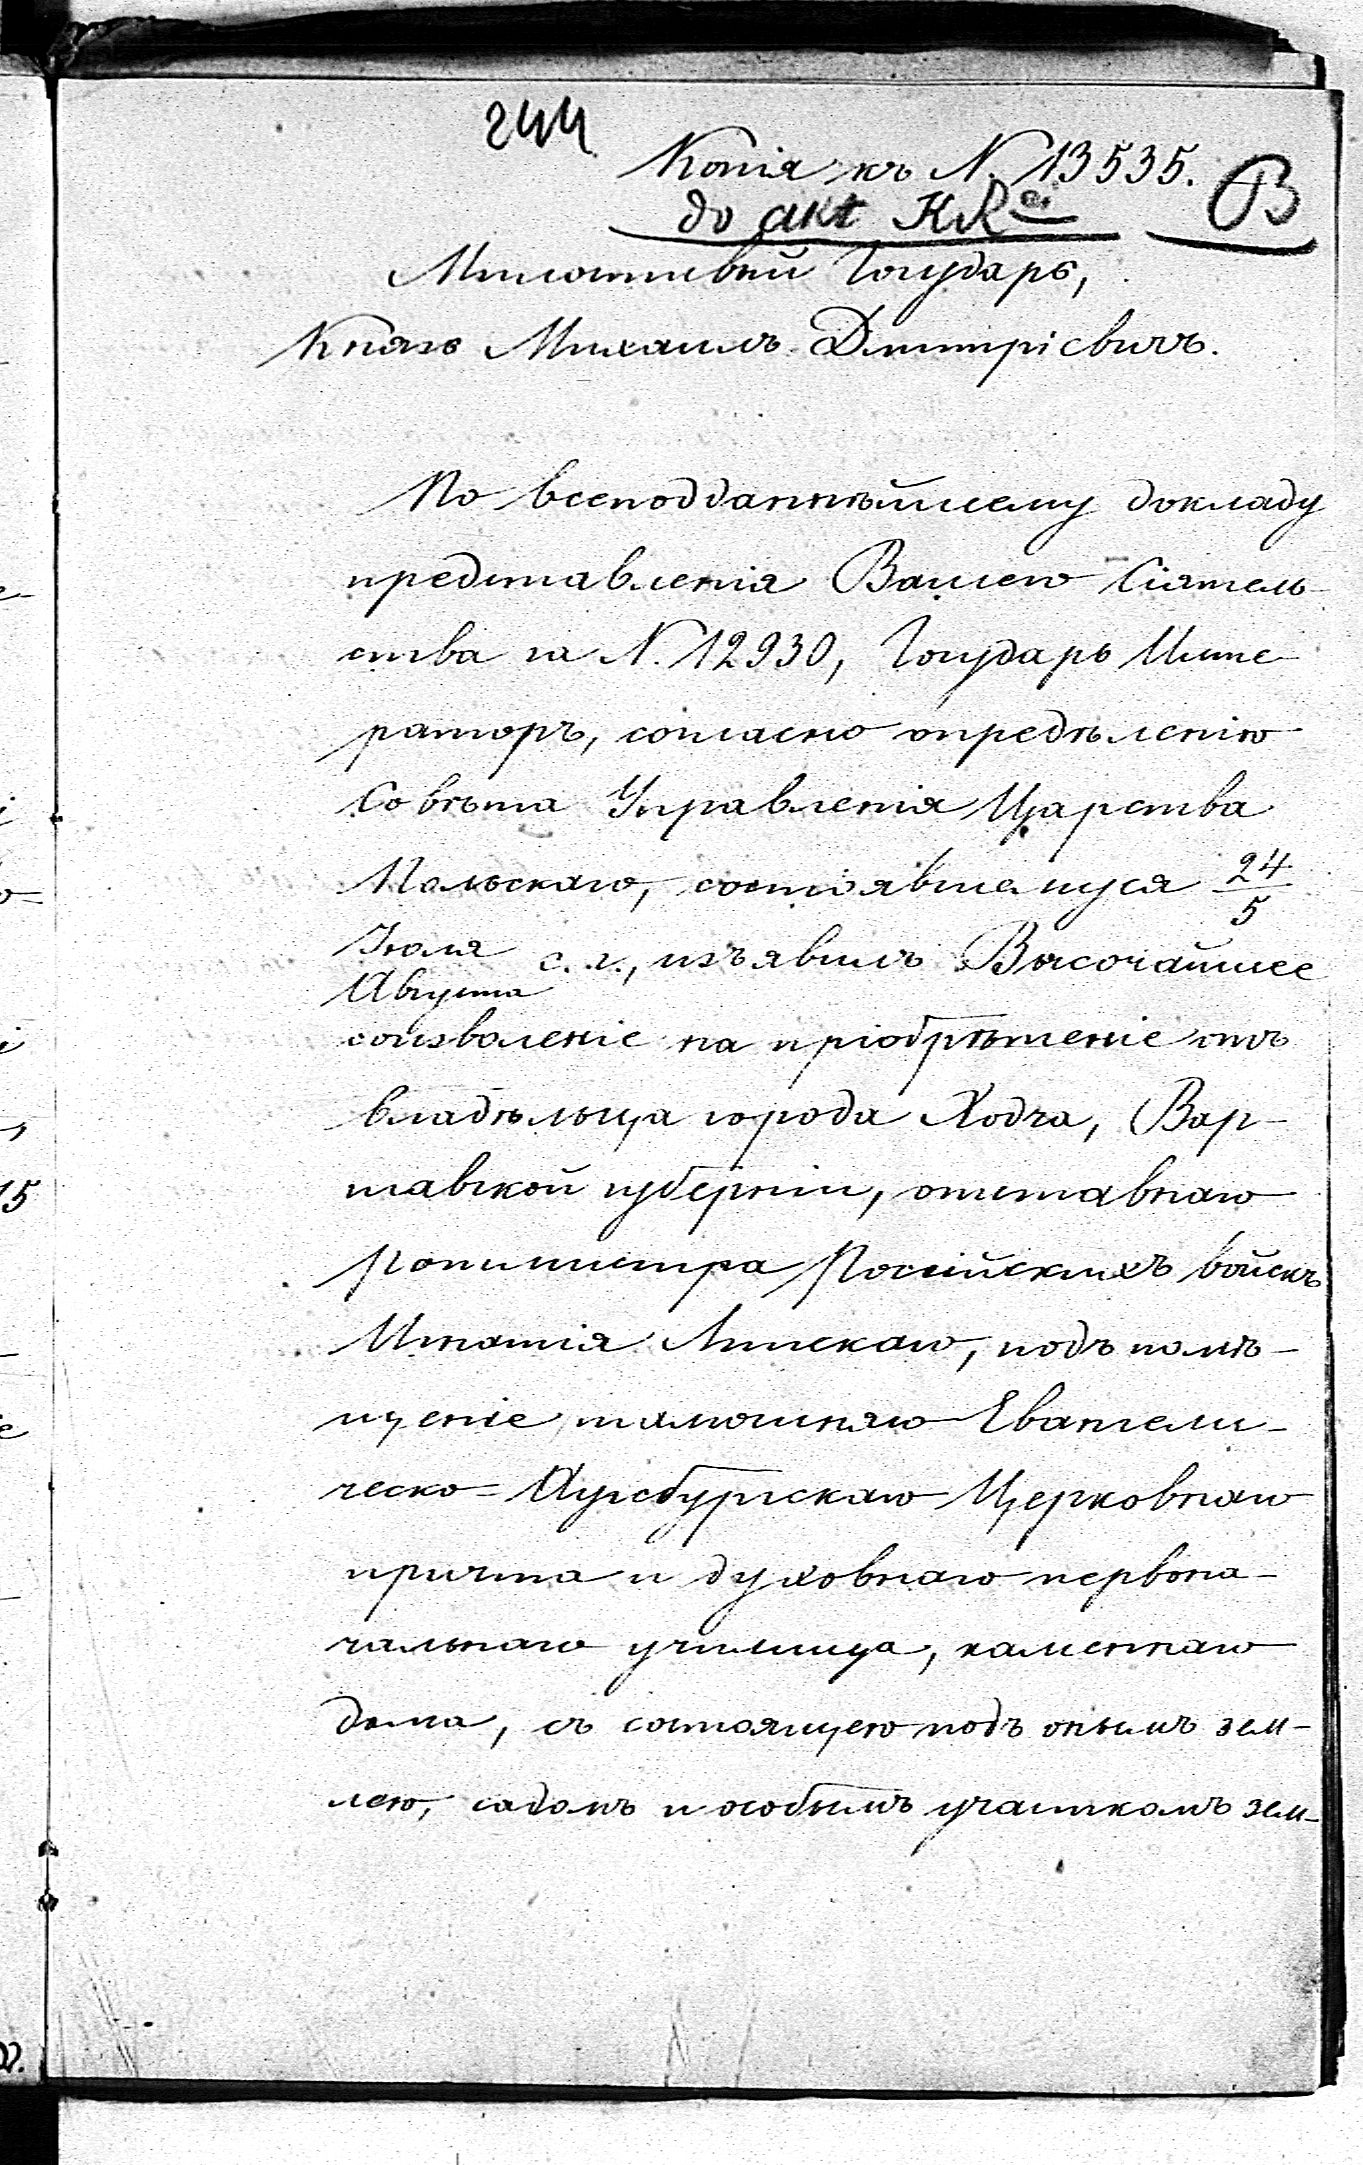 244
Копія къ N. 13535.
do akt KR
B
Милостивый Государь,
Князь Михаилъ Дмитріевичъ.
По всеподданнѣйшему докладу
представленія Вашего Сіятель-
ства за N. 12930, Государь Импе-
раторъ, согласно опредѣленію
Совѣта Управленія Царства
Польскаго, состоявшемуся 24/5
Іюля/Августа с. г., изъявилъ Высочайшее
соизволеніе на пріобрѣтеніе отъ
владѣльца города Ходча, Вар-
шавской губерніи, отставнаго
Ротмистра Россійскихъ войскъ
Игнатія Липскаго, подъ помѣ-
щеніе тамошняго Евангели-
ческо-Аугсбургскаго Церковнаго
причта и духовнаго первона-
чальнаго училища, каменнаго
дома, съ состоящею подъ онымъ зем-
лею, садомъ и особымъ участкомъ зем-
15